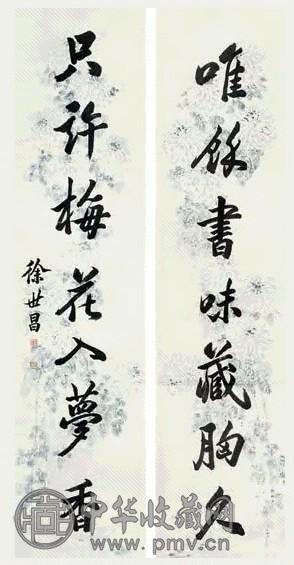 唯餘書味藏胸久
只許梅花入夢香
徐世昌
中华收藏网
www.pmv.cn